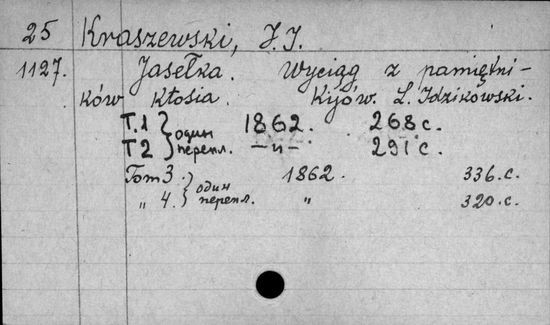 25 Kraszewski, J. I.
1127. Jasełka. Wyciąg z pamiętni-
ków Kłosia. Kijów. L. Idzikowski.
Т.1 } один 1862. 268 с.
Т2 } перепл. —и— 291 с.
Том 3. } один 1862. 336. с.
„ 4. } перепл. „ 320. с.